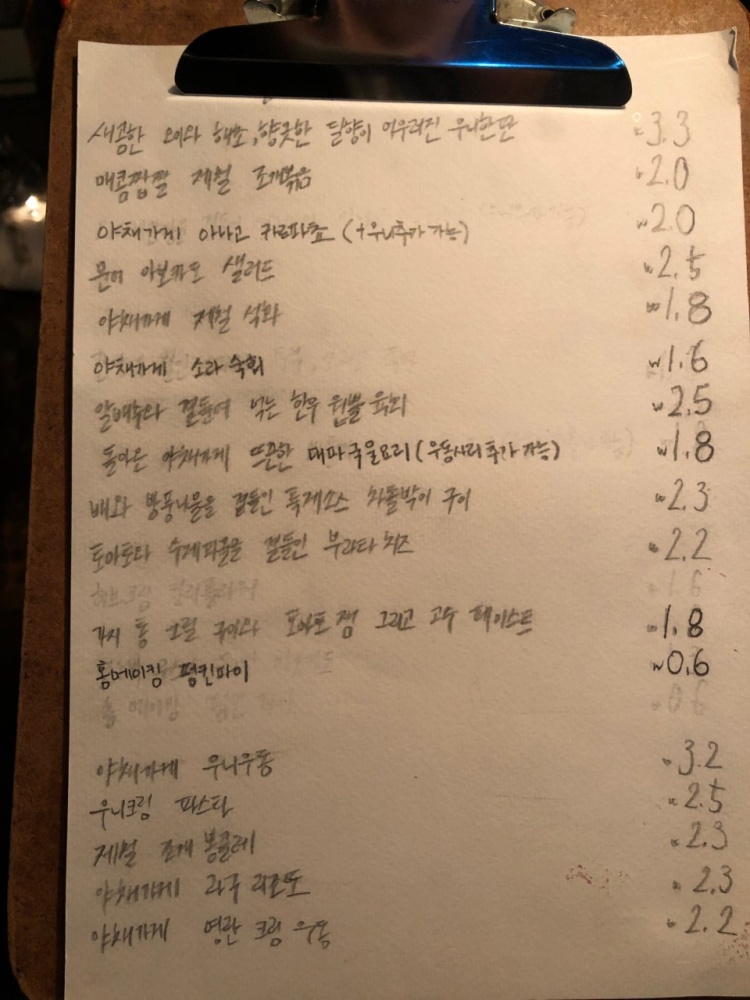 새콤한 오이와 해초, 향긋한 달향이 어우러진 우니한판 ₩3.3
매콤짭짤 제철 조개볶음 ₩2.0
야채가게 아나고 카르파쵸 (+우니추가 가능) ₩2.0
문어 아보카도 샐러드 ₩2.5
야채가게 제철 석화 ₩1.8
야채가게 소라 숙회 ₩1.6
알배추와 곁들여 먹는 한우 육회 ₩2.5
돌아온 야채가게 뜨끈한 대파국물요리 (우동사리 추가 가능) ₩1.8
배와 방풍나물을 곁들인 특제소스 차돌박이 구이 ₩2.3
토마토타 수제피클을 곁들인 부라타 치즈 ₩2.2
1.6
가지 통 그릴 구이와 토마토 잼 그리고 고수 페이스트 ₩1.8
홈메이킹 펌킨파이 ₩0.6
홈메이킹 0.6
야채가게 우니우동 ₩3.2
우니크림 파스타 ₩2.5
제철 조개 봉골레 ₩2.3
야채가게 라구 리조또 ₩2.3
야채가게 명란 크림 우동 ₩2.2